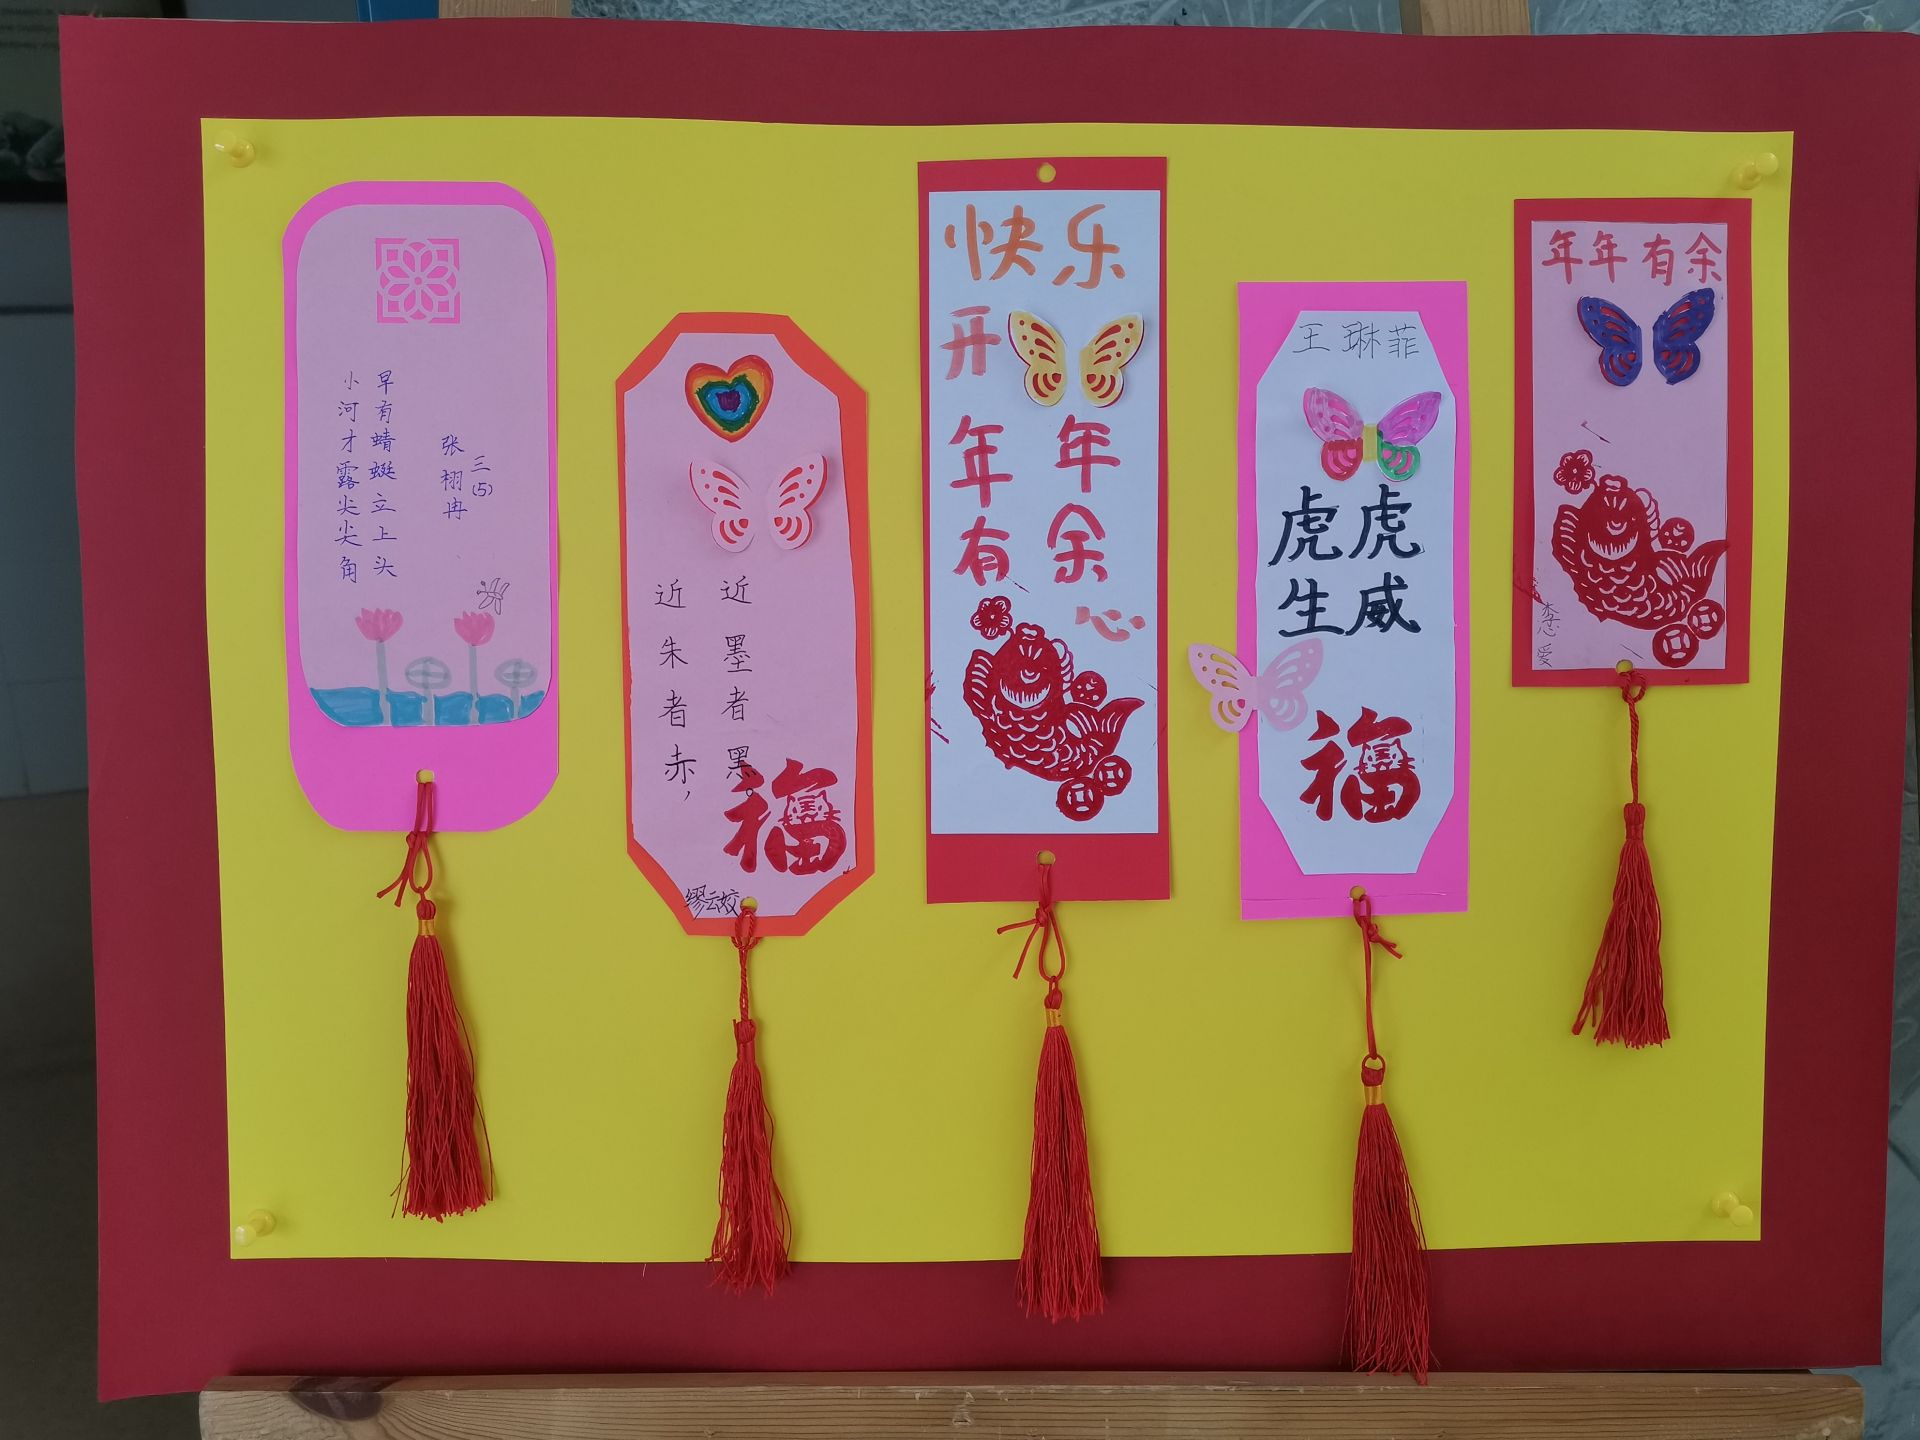 小河才露尖尖角
早有蜻蜓立上头
三(5)
张栩冉
近朱者赤，
近墨者黑。
福
缪云姣
快乐
开
年年
有余
心
王琳菲
虎虎
生威
福
年年有余
爱